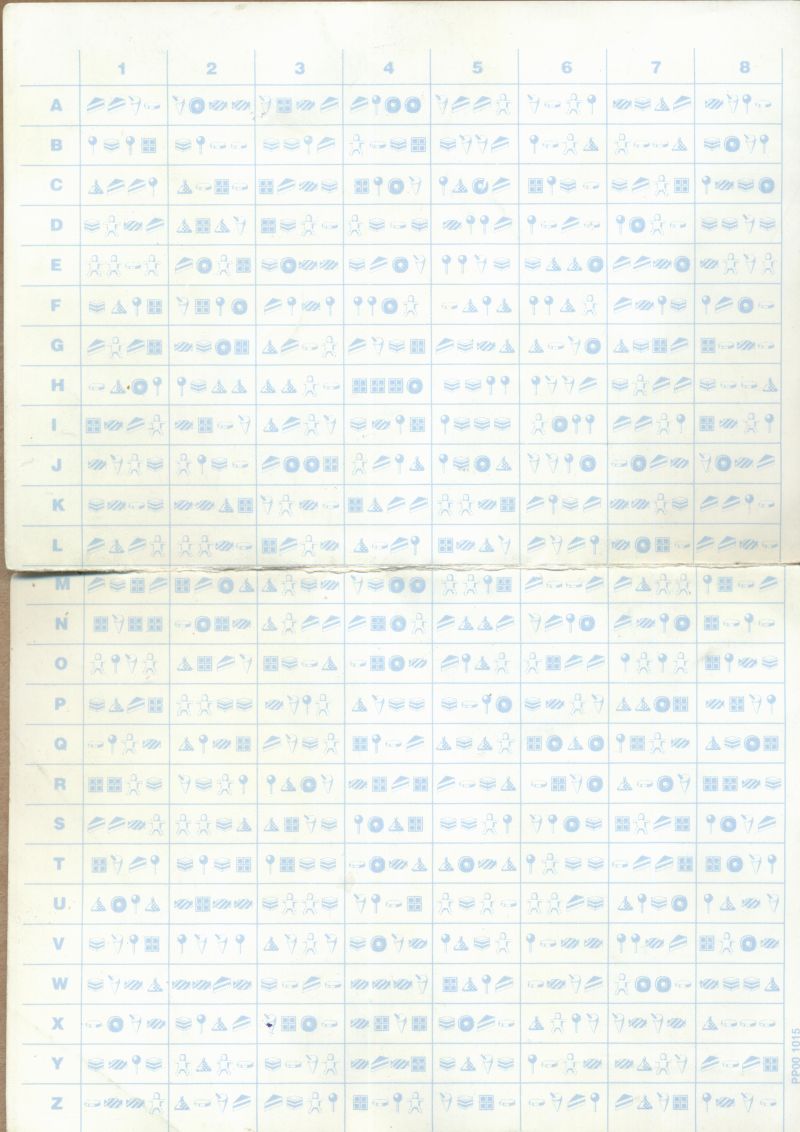 1 2 3 4 5 6 7 8
A
B
C
D
E
F
G
H
I
J
K
L
M
N
O
P
Q
R
S
T
U
V
W
X
Y
Z
PP00 1015